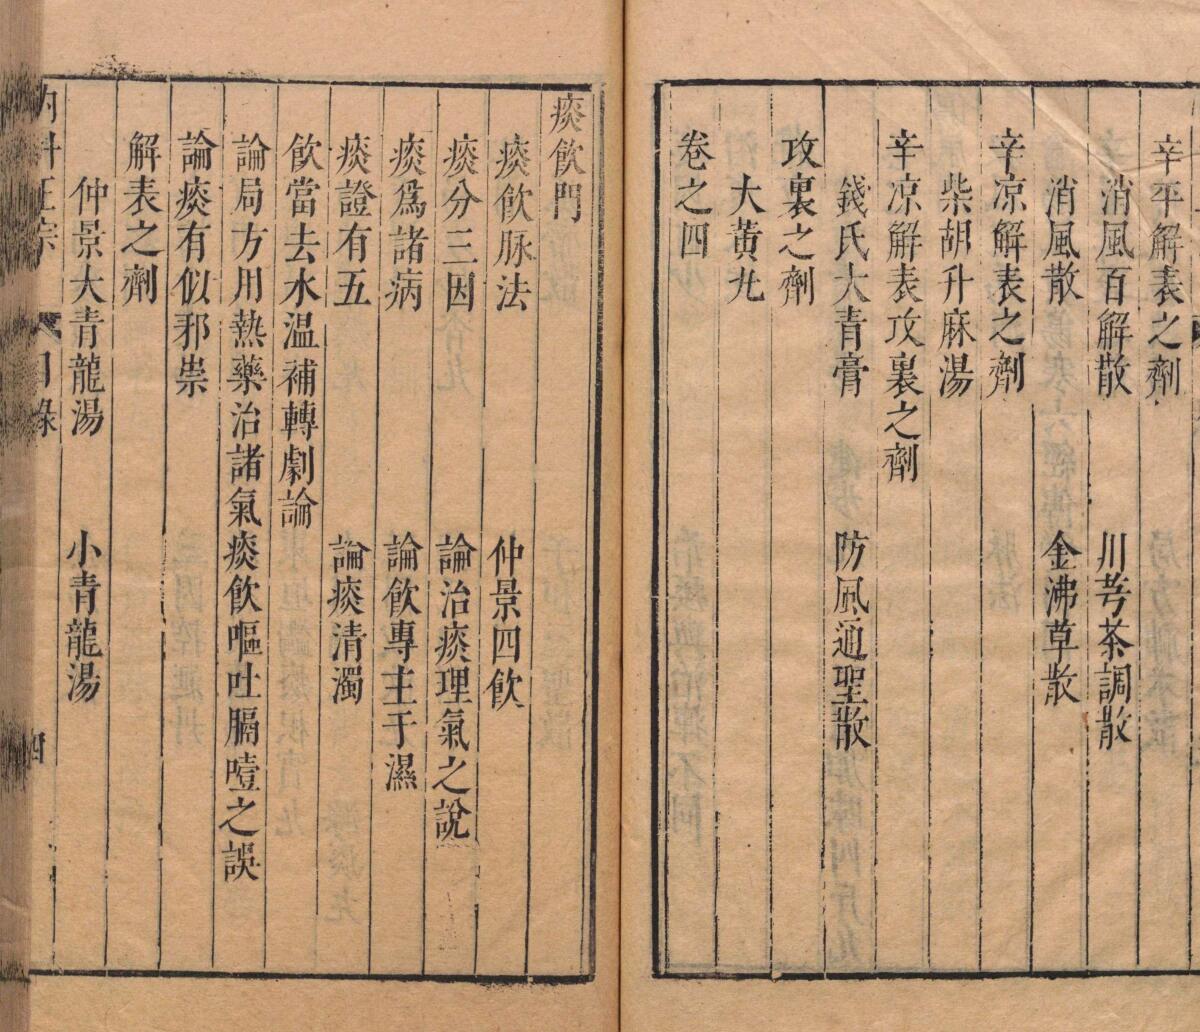 辛平解表之劑
消風百解散 川芎茶調散
消風散 金沸草散
辛凉解表之劑
柴胡升麻湯
辛凉解表攻裏之劑
錢氏大青膏 防風通聖散
攻裏之劑
大黄丸
卷之四
痰飲門
痰飲脉法 仲景四飲
痰分三因 論治痰理氣之說
痰爲諸病 論飲專主于濕
痰證有五 論痰清濁
飲當去水温補轉劇論
論局方用熱藥治諸氣痰飲嘔吐膈噎之誤
論痰有似邪祟
解表之劑
仲景大青龍湯 小青龍湯
内科正宗 目錄 四